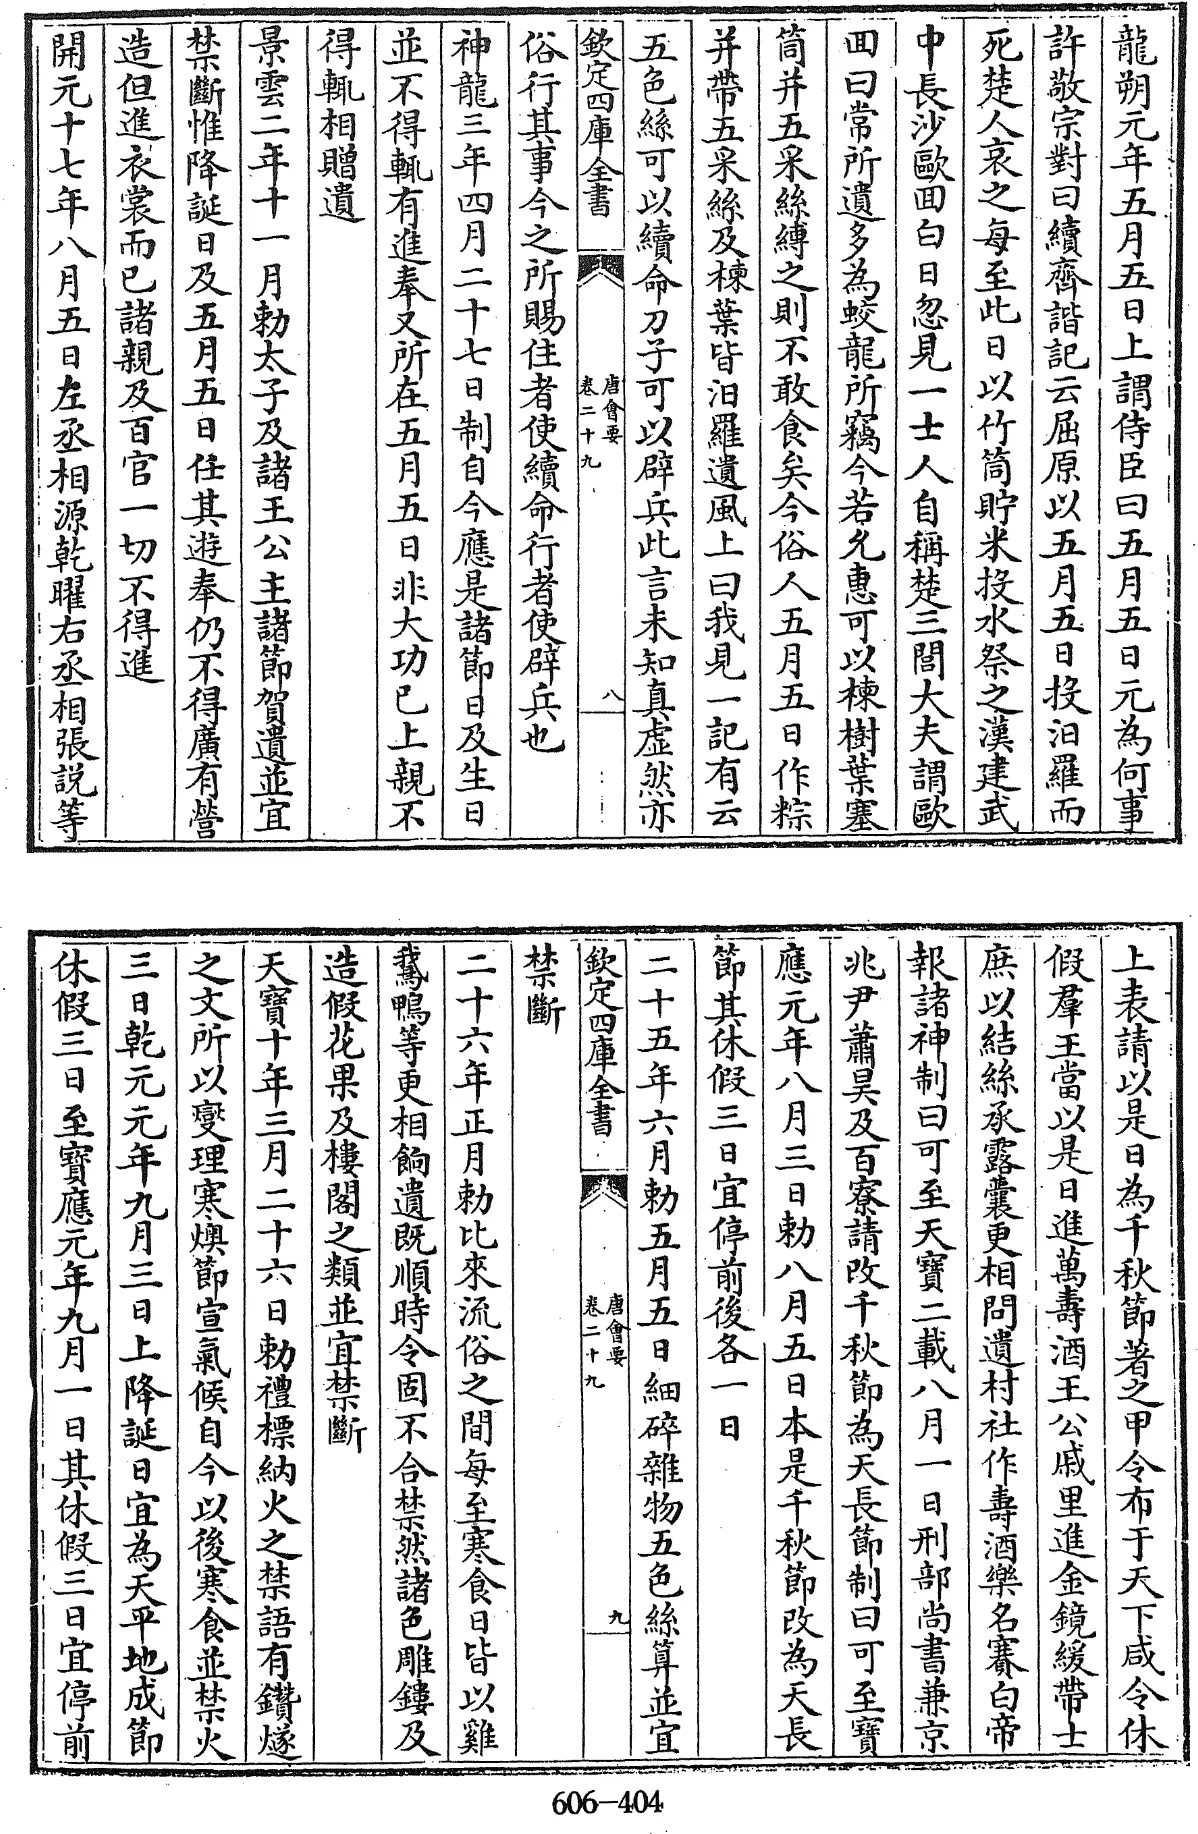 龍朔元年五月五日上謂侍臣曰五月五日元為何事
許敬宗對曰續齊諧記云屈原以五月五日投汨羅而
死楚人哀之每至此日以竹筒貯米投水祭之漢建武
中長沙歐回白日忽見一士人自稱楚三閭大夫謂歐
回曰常所遺多為蛟龍所竊今若允惠可以楝樹葉塞
筒并五采絲縛之則不敢食矣今俗人五月五日作粽
并帶五采絲及楝葉皆汨羅遺風上曰我見一記有云
五色絲可以續命刀子可以辟兵此言未知真虛然亦
欽定四庫全書
唐會要
卷二十九
八
俗行其事今之所賜住者使續命行者使辟兵也
神龍三年四月二十七日制自今應是諸節日及生日
並不得輒有進奉又所在五月五日非大功已上親不
得輒相贈遺
景雲二年十一月勅太子及諸王公主諸節賀遺並宜
禁斷惟降誕日及五月五日任其遊奉仍不得廣有營
造但進衣裳而已諸親及百官一切不得進
開元十七年八月五日左丞相源乾曜右丞相張説等
上表請以是日為千秋節著之甲令布于天下咸令休
假羣王當以是日進萬壽酒王公戚里進金鏡緩帶士
庶以結絲承露囊更相問遺村社作壽酒樂名賽白帝
報諸神制曰可至天寶二載八月一日刑部尚書兼京
兆尹蕭炅及百寮請改千秋節為天長節制曰可至寶
應元年八月三日勅八月五日本是千秋節改為天長
節其休假三日宜停前後各一日
二十五年六月勅五月五日細碎雜物五色絲算並宜
欽定四庫全書
唐會要
卷二十九
九
禁斷
二十六年正月勅比來流俗之間每至寒食日皆以雞
鵞鴨等更相餉遺既順時令固不合禁然諸色雕鏤及
造假花果及樓閣之類並宜禁斷
天寶十年三月二十六日勅禮標納火之禁語有鑽燧
之文所以燮理寒燠節宣氣候自今以後寒食並禁火
三日乾元元年九月三日上降誕日宜為天平地成節
休假三日至寶應元年九月一日其休假三日宜停前
606-404